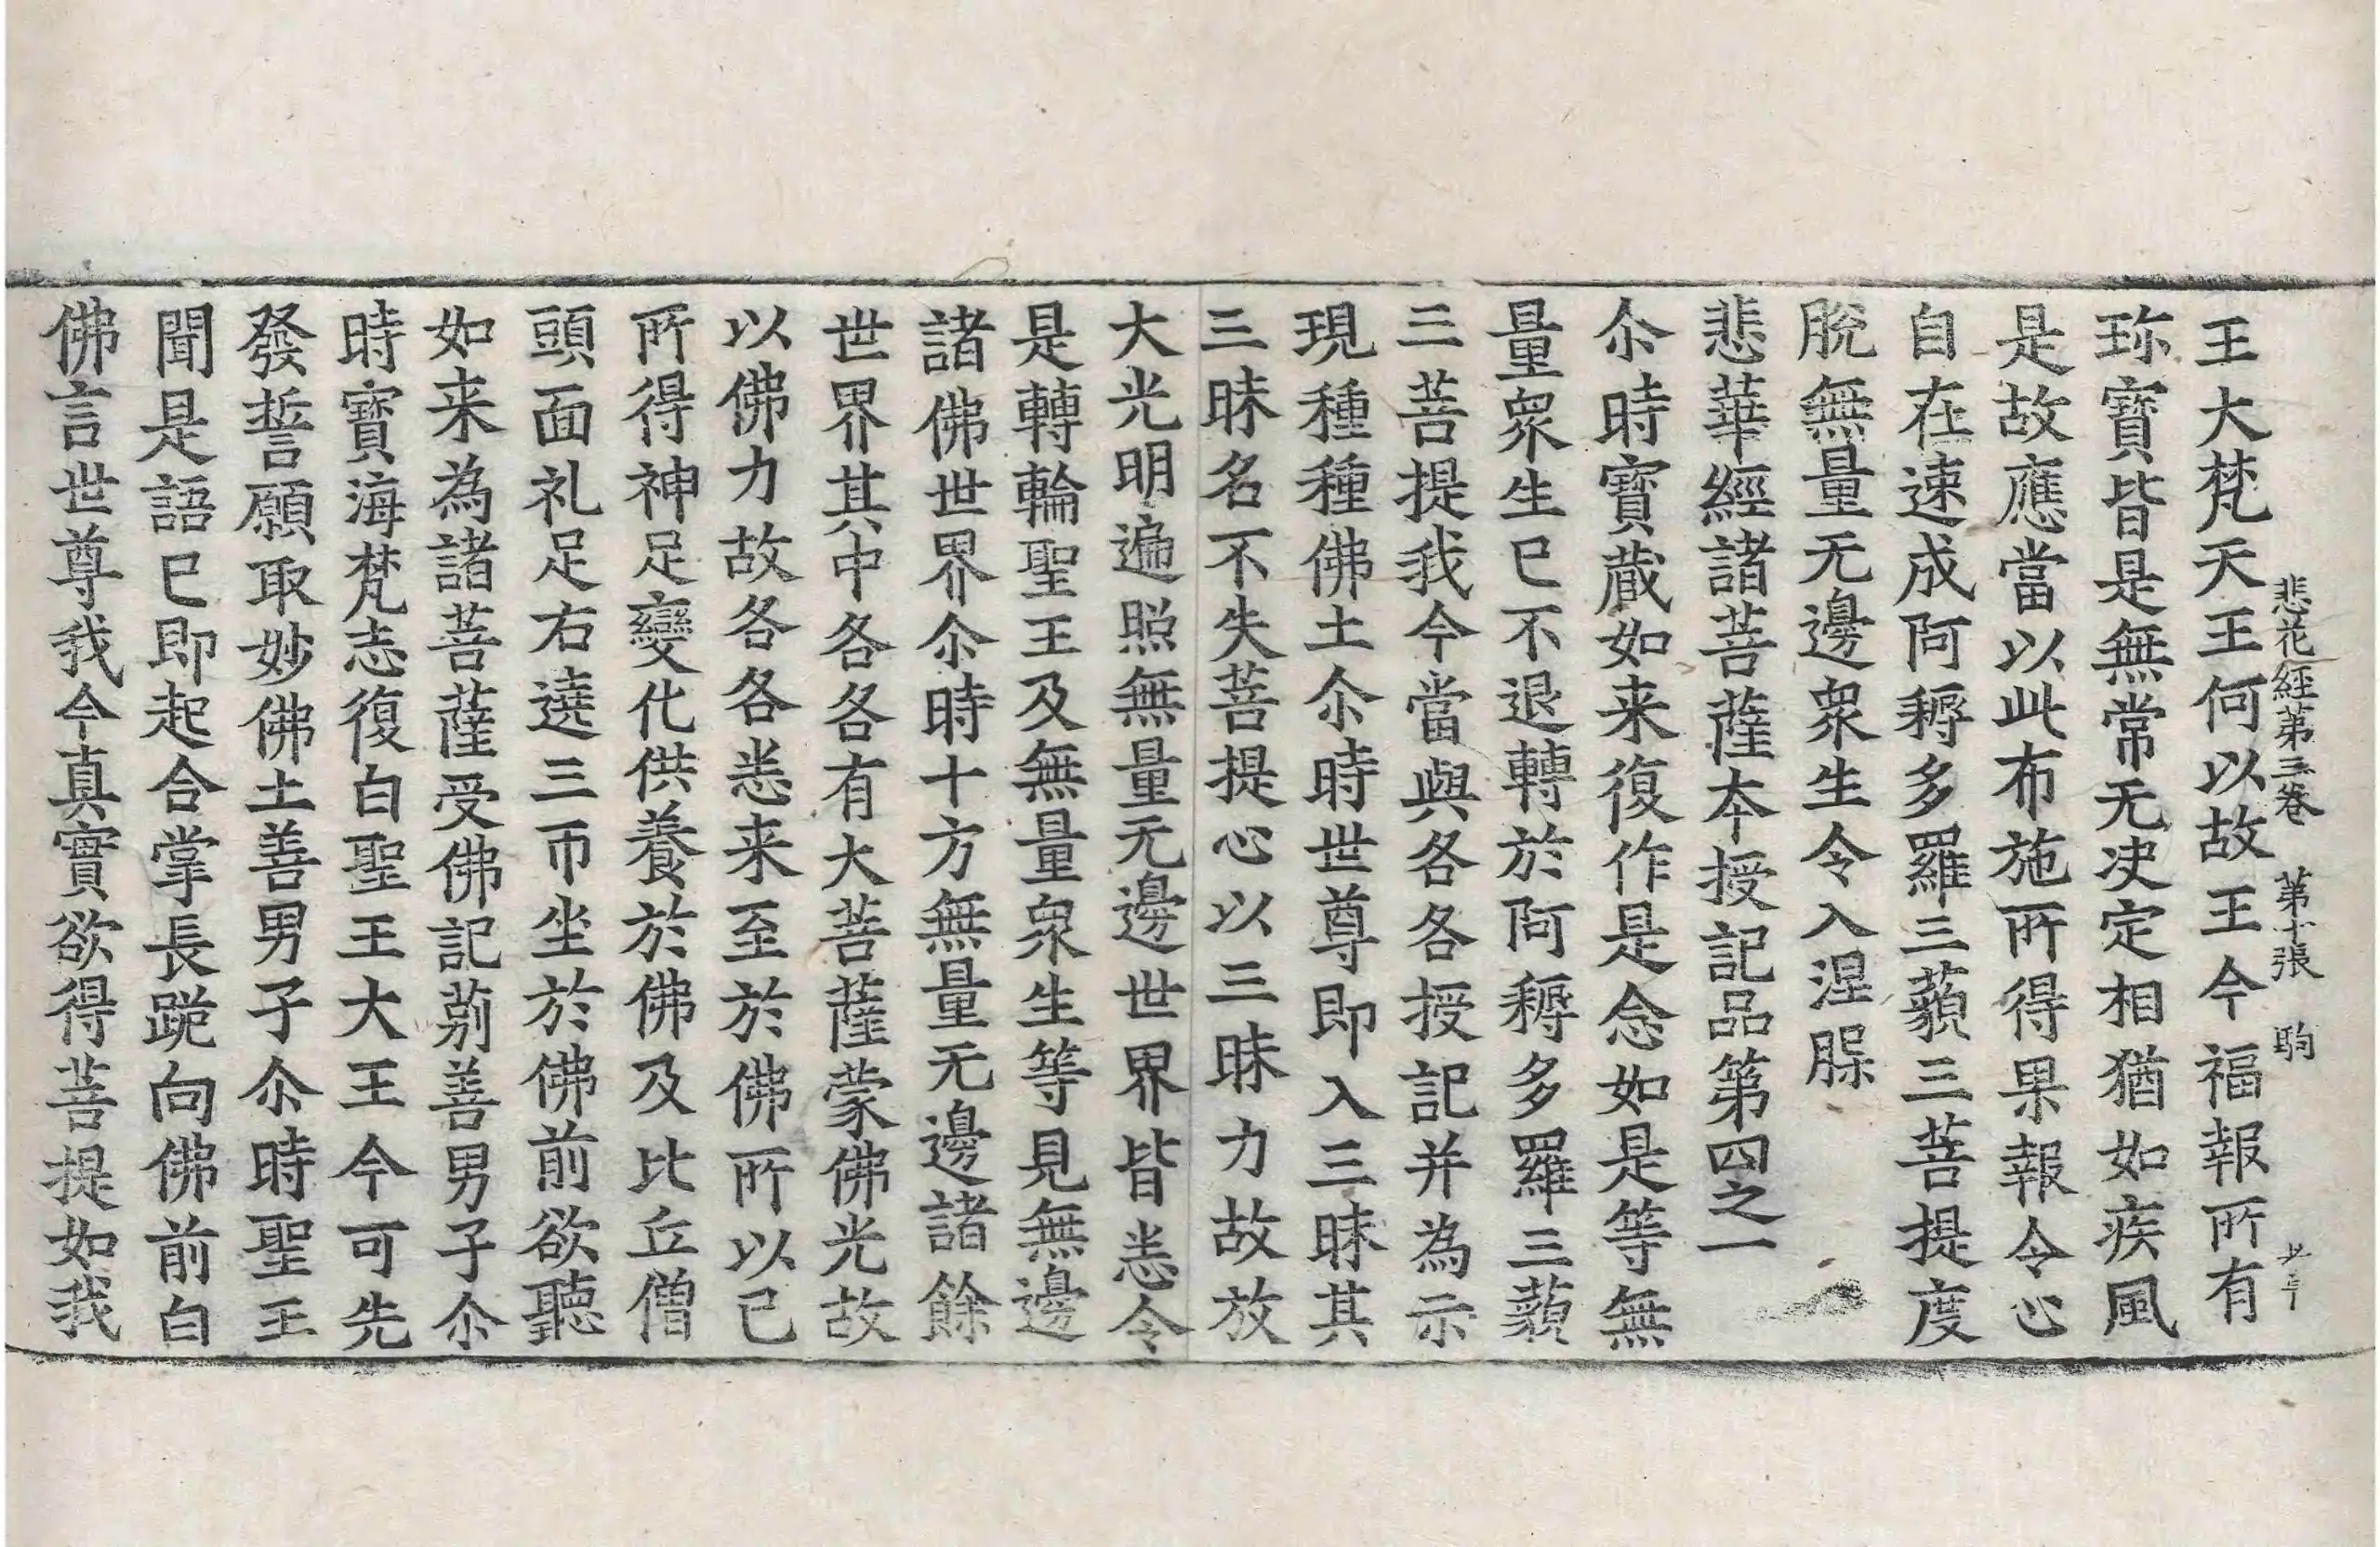 悲花経苐三卷　苐十張　駒
王大梵天王何以故王今福報所有
珎寳皆是無常无决定相猶如疾風
是故應當以此布施所得果報令心
自在速成阿耨多羅三藐三菩提度
脫無量无邊衆生令入涅槃
悲華經諸菩薩本授記品第四之一
尒時寳蔵如来復作是念如是等無
量衆生已不退轉於阿耨多羅三藐
三菩提我今當與各各授記并為示
現種種佛土尒時世尊即入三昧其
三昧名不失菩提心以三昧力故放
大光明遍照無量无邊世界皆悉令
是轉輪聖王及無量衆生等見無邊
諸佛世界尒時十方無量无邊諸餘
世界其中各各有大菩薩蒙佛光故
以佛力故各各悉来至於佛所以已
所得神足變化供養於佛及比丘僧
頭面礼足右遶三帀坐於佛前欲聽
如来為諸菩薩受佛記莂善男子尒
時寳海梵志復白聖王大王今可先
發誓願取妙佛土善男子尒時聖王
聞是語已即起合掌長跪向佛前白
佛言世尊我今真實欲得菩提如我